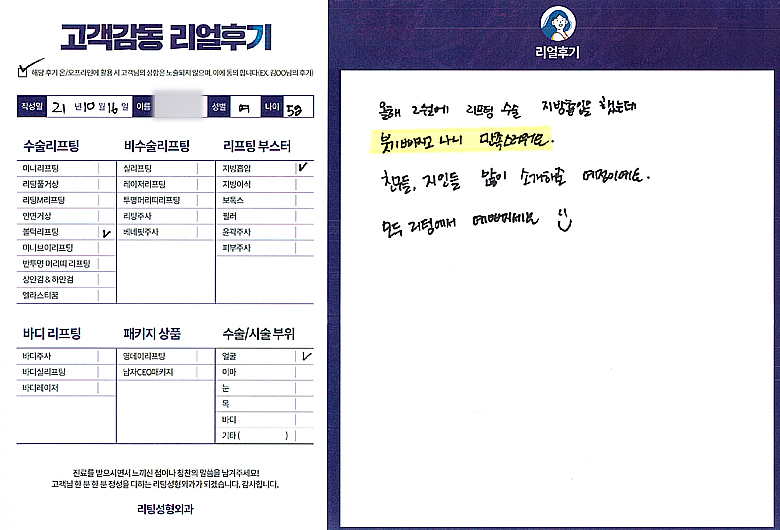 고객감동 리얼후기
해당 후기 온/오프라인에 활용 시 고객님의 성함은 노출되지 않으며, 이에 동의 합니다(EX. 김OO님의 후기)
작성일 21 년 10 월 16 일 이름 성별 여 나이 58
수술리프팅
미니리프팅
리팅풀거상
리팅M리프팅
안면거상
볼턱리프팅
미니브이리프팅
반투명 머리띠 리프팅
상안검 & 하안검
엘라스티꿈
비수술리프팅
실리프팅
레이저리프팅
투명머리띠리프팅
리팅주사
베네핏주사
리프팅 부스터
지방흡입
지방이식
보톡스
필러
윤곽주사
피부주사
바디 리프팅
바디주사
바디실리프팅
바디레이저
패키지 상품
영데이리프팅
남자CEO패키지
수술/시술 부위
얼굴
이마
눈
목
바디
기타 ( )
진료를 받으시면서 느끼신 점이나 칭찬의 말씀을 남겨주세요!
고객님 한 분 한 분 정성을 다하는 리팅성형외과가 되겠습니다. 감사합니다.
리팅성형외과
리얼후기
올해 2월에 리프팅 수술 지방흡입을 했는데
붓기 빠지고 나니 만족스러워요.
친구들, 지인들 많이 소개해줄 예정이에요.
모두 리팅에서 예뻐지세요